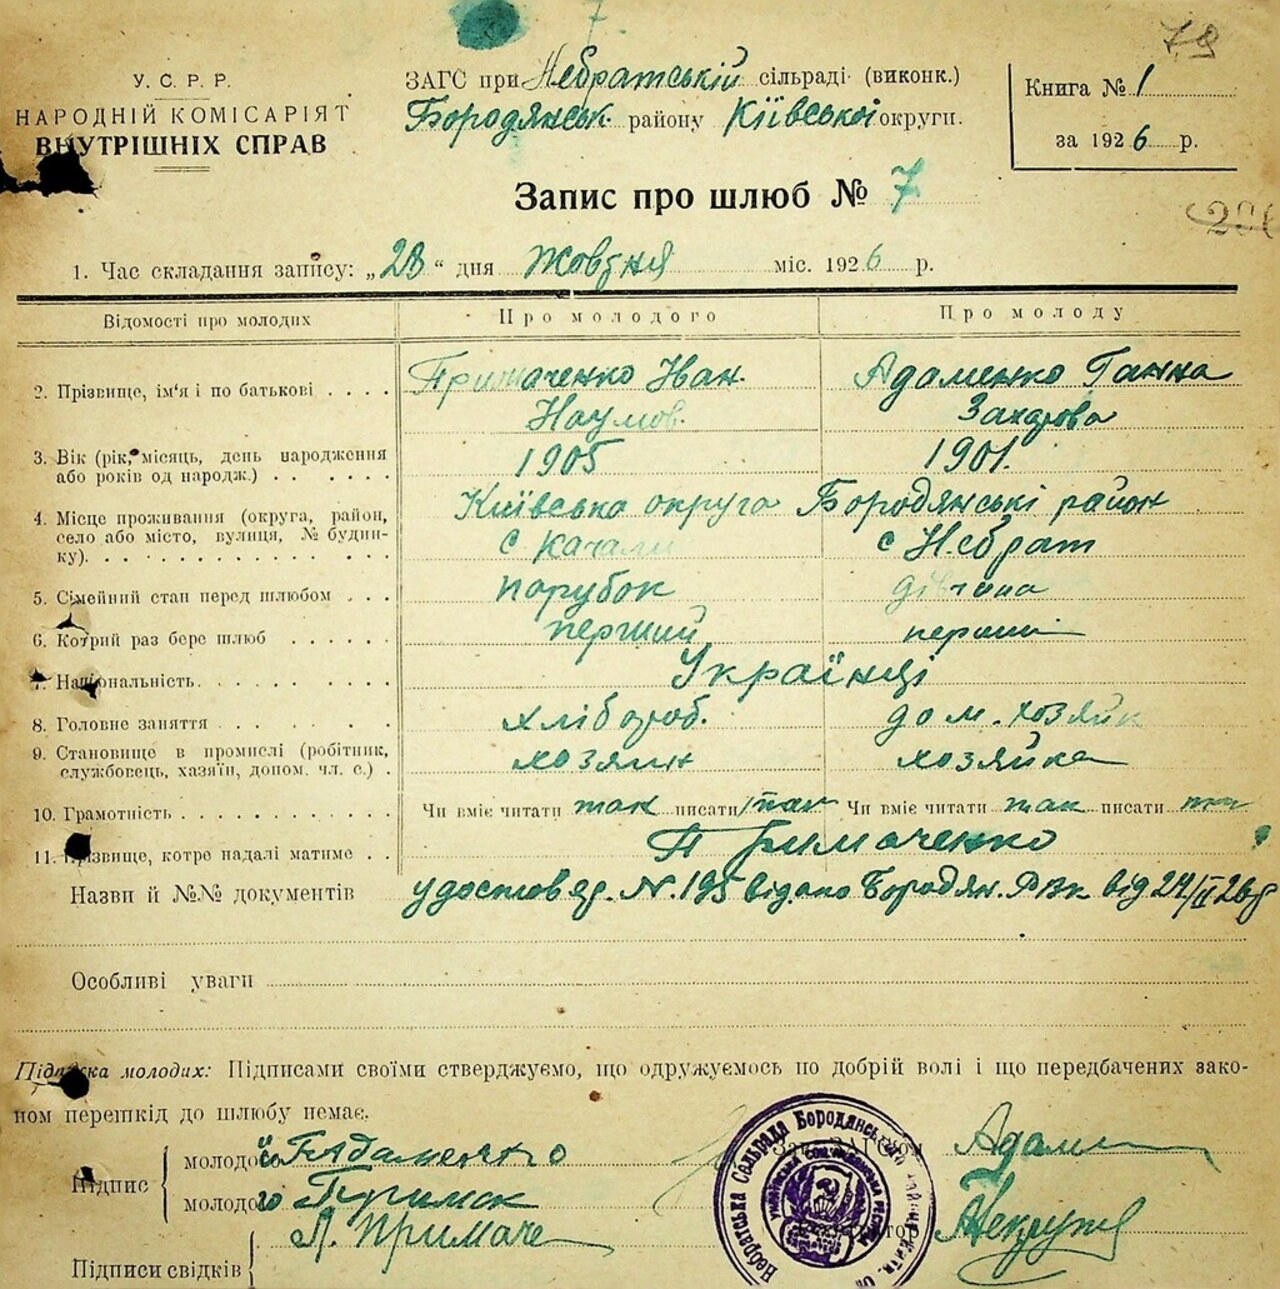 79
У. С. Р. Р.
НАРОДНІЙ КОМІСАРІЯТ
ВНУТРІШНІХ СПРАВ
ЗАГС при Небратській сільраді (виконк.)
Бородянськ. району Київської округи.
Книга № 1
за 1926 р.
Запис про шлюб № 7
1. Час складання запису: „28“ дня Жовтня міс. 1926 р.
Відомості про молодих Про молодого Про молоду
2. Прізвище, ім'я і по батькові . . . . Примаченко Іван Адаменко Ганна
Наумов. Захарова
3. Вік (рік, місяць, день народження 1905 1901.
або років од народж.) . . . . . .
4. Місце проживання (округа, район, Київська округа Бородянські район
село або місто, вулиця, № будин- с Качали с Небрат
ку). . . . . . . . . . . .
5. Сімейний стан перед шлюбом . . . парубок дівчина
6. Котрий раз бере шлюб . . . . . . перший перший
7. Національність. . . . . . . . . . Українці
8. Головне заняття . . . . . . . . . хлібороб. дом. хозяйк
9. Становище в промислі (робітник, хозяин хозяйка
службовець, хазяїн, допом. чл. с.) .
10. Грамотність . . . . . . . . . . . . Чи вміє читати так писати так Чи вміє читати так писати так
11. Прізвище, котре надалі матиме . . Примаченко
Назви й №№ документів удостовер. N. 195 видано Бородян. РВК від 24/II 26р
Особливі уваги
Підписка молодих: Підписами своїми стверджуємо, що одружуємось по добрій волі і що передбачених зако-
ном перешкід до шлюбу немає.
Підпис
молодої Г Адаменко
молодого Примак
Підписи свідків
А. Примаче
Адам
Небратська Сельрада Бородянського